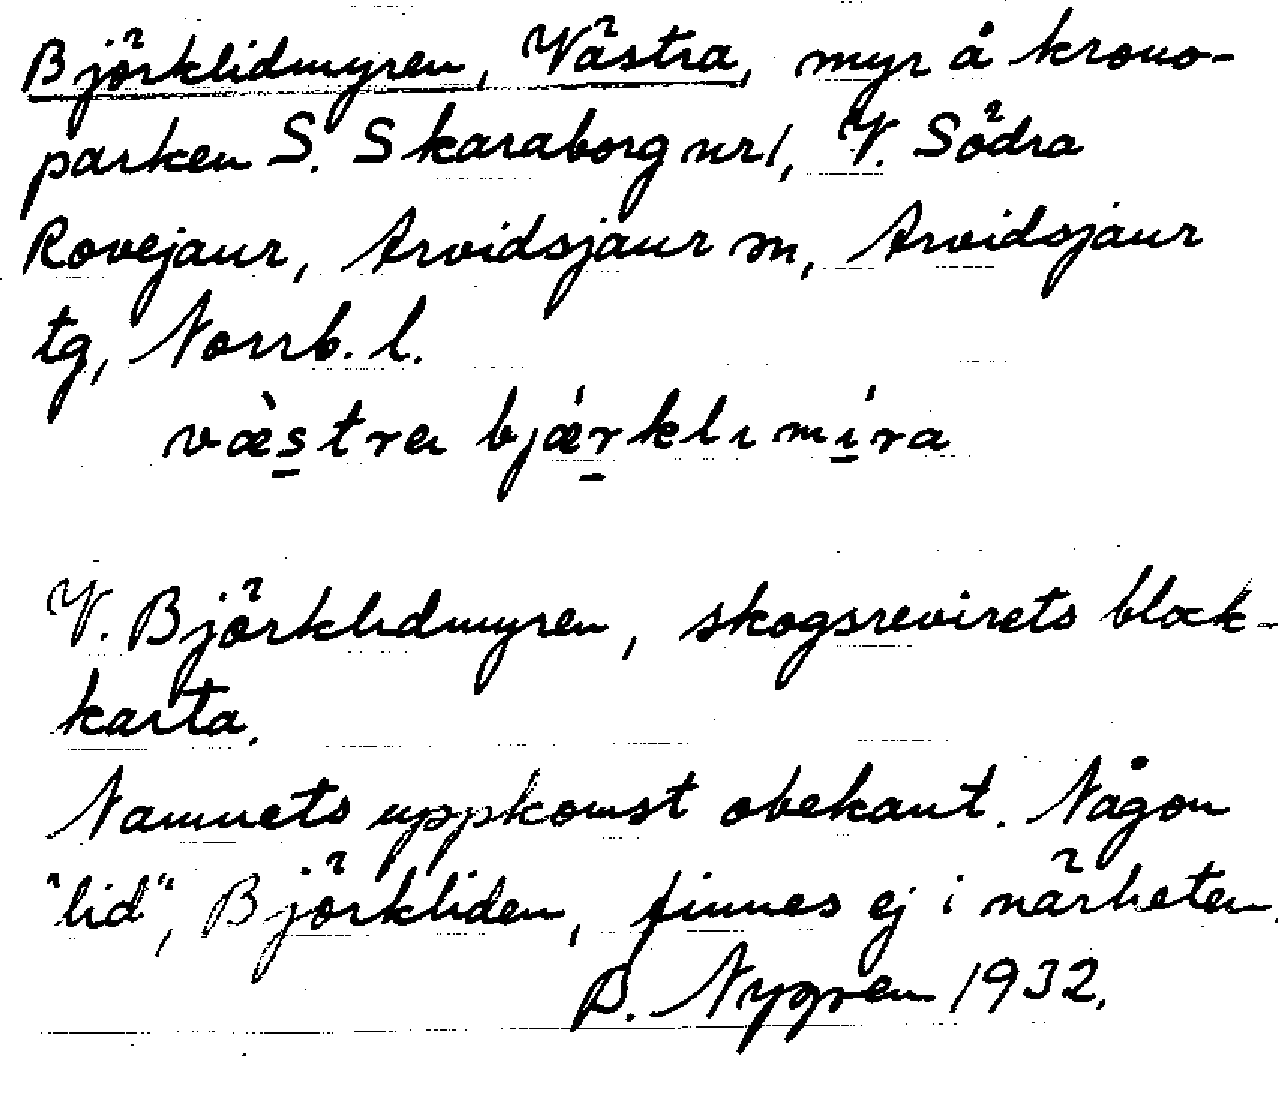 Björklidmyren, Västra, myr å krono-
parken S. Skaraborg nr 1, V. Södra
Rovejaur, Arvidsjaur sn, Arvidsjaur
tg, Norrb. l.
væ̀stra bjǽrklımíra
V. Björklidmyren, skogsrevirets block-
karta.
Namnets uppkomst obekant. Någon
"lid", Björkliden, finnes ej i närheten.
B. Nygren 1932.